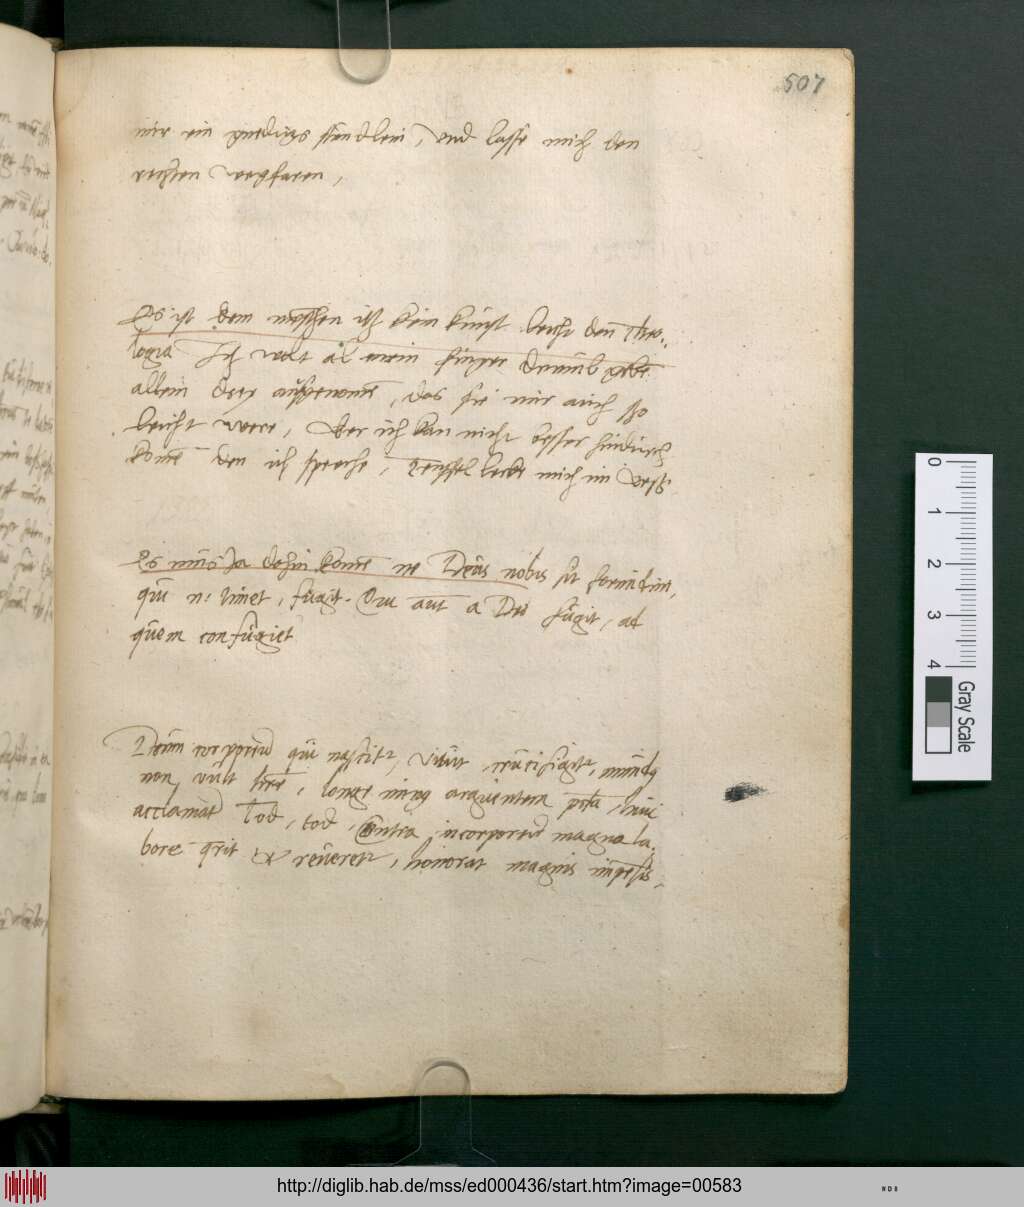 507
mir ein gnedigs stundlein, Vnd lasse mich den
rechten weg faren,
Es ist dem menschen itzt kein kunst leicht den Theo-
logia Ich wolt al mein finger drumb gebe
allein drey ausgenome, das sie mir auch so
leicht were, Aber ich kan nicht besser hindurch
kome den ich spreche, Teuffel leck mich im
Es mus Ja dohin kome ne Deus nobis sit formidini,
qui n: timet, fugit. Qui aut a Deo fugit, ad
quem confugiet
Deum corporeu qui nascit, vivit, crucifigit, mundus
non vult hre, longe minus arguentem pcta, huic
acclamat Tod, tod, Contra incorporeu magna la-
bore qrit et reveret, honorat magnis impesis,
0
1
2
3
4
Gray Scale
http://diglib.hab.de/mss/ed000436/start.htm?image=00583